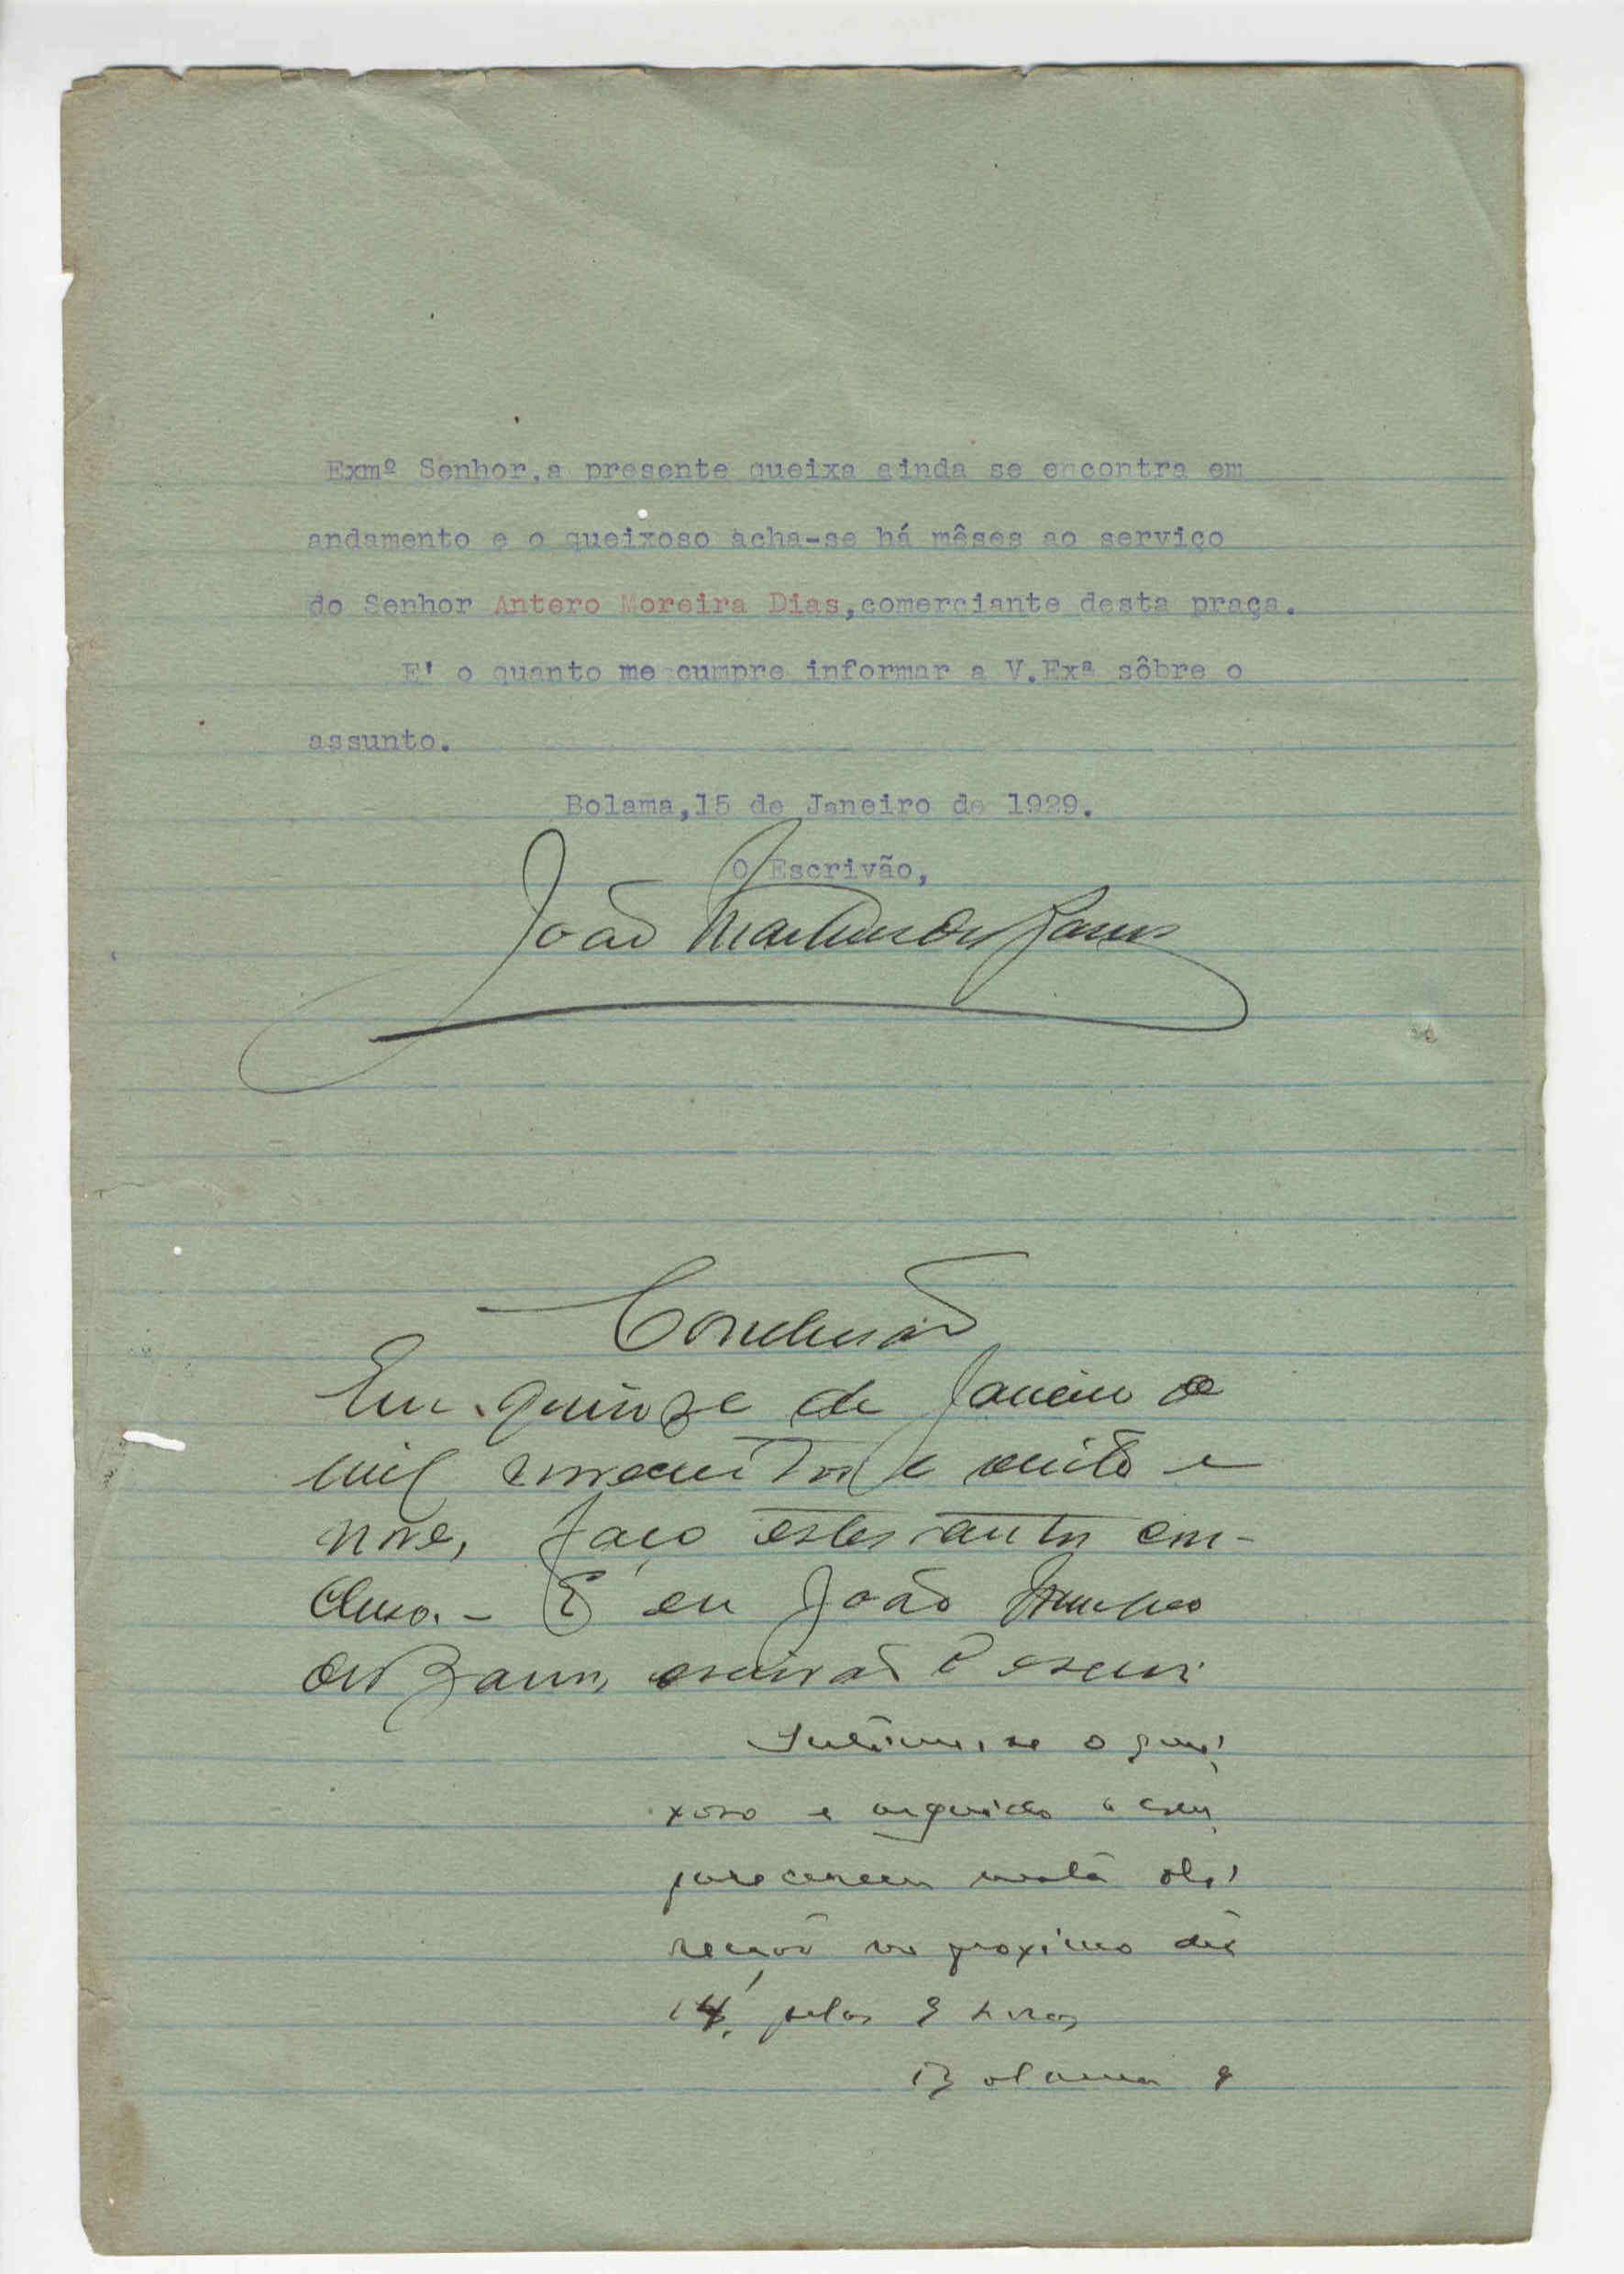 Exmº Senhor,a presente queixa ainda se encontra em
andamento e o queixoso acha-se há mêses ao serviço
do Senhor Antero Moreira Dias,comerciante desta praça.
E' o quanto me cumpre informar a V.Exª sôbre o
assunto.
Bolama,15 de Janeiro de 1929.
O Escrivão,
João
Conclusão
Em quinze de Janeiro de
mil novecentos e vinte e
nove, faço estes autos con-
clusos. - E eu João
escrivão o escrevi
Intime-se o quei
xoso e arguido a com
parecerem nesta
no proximo dia
14, pelas 9 horas
Bolama 9